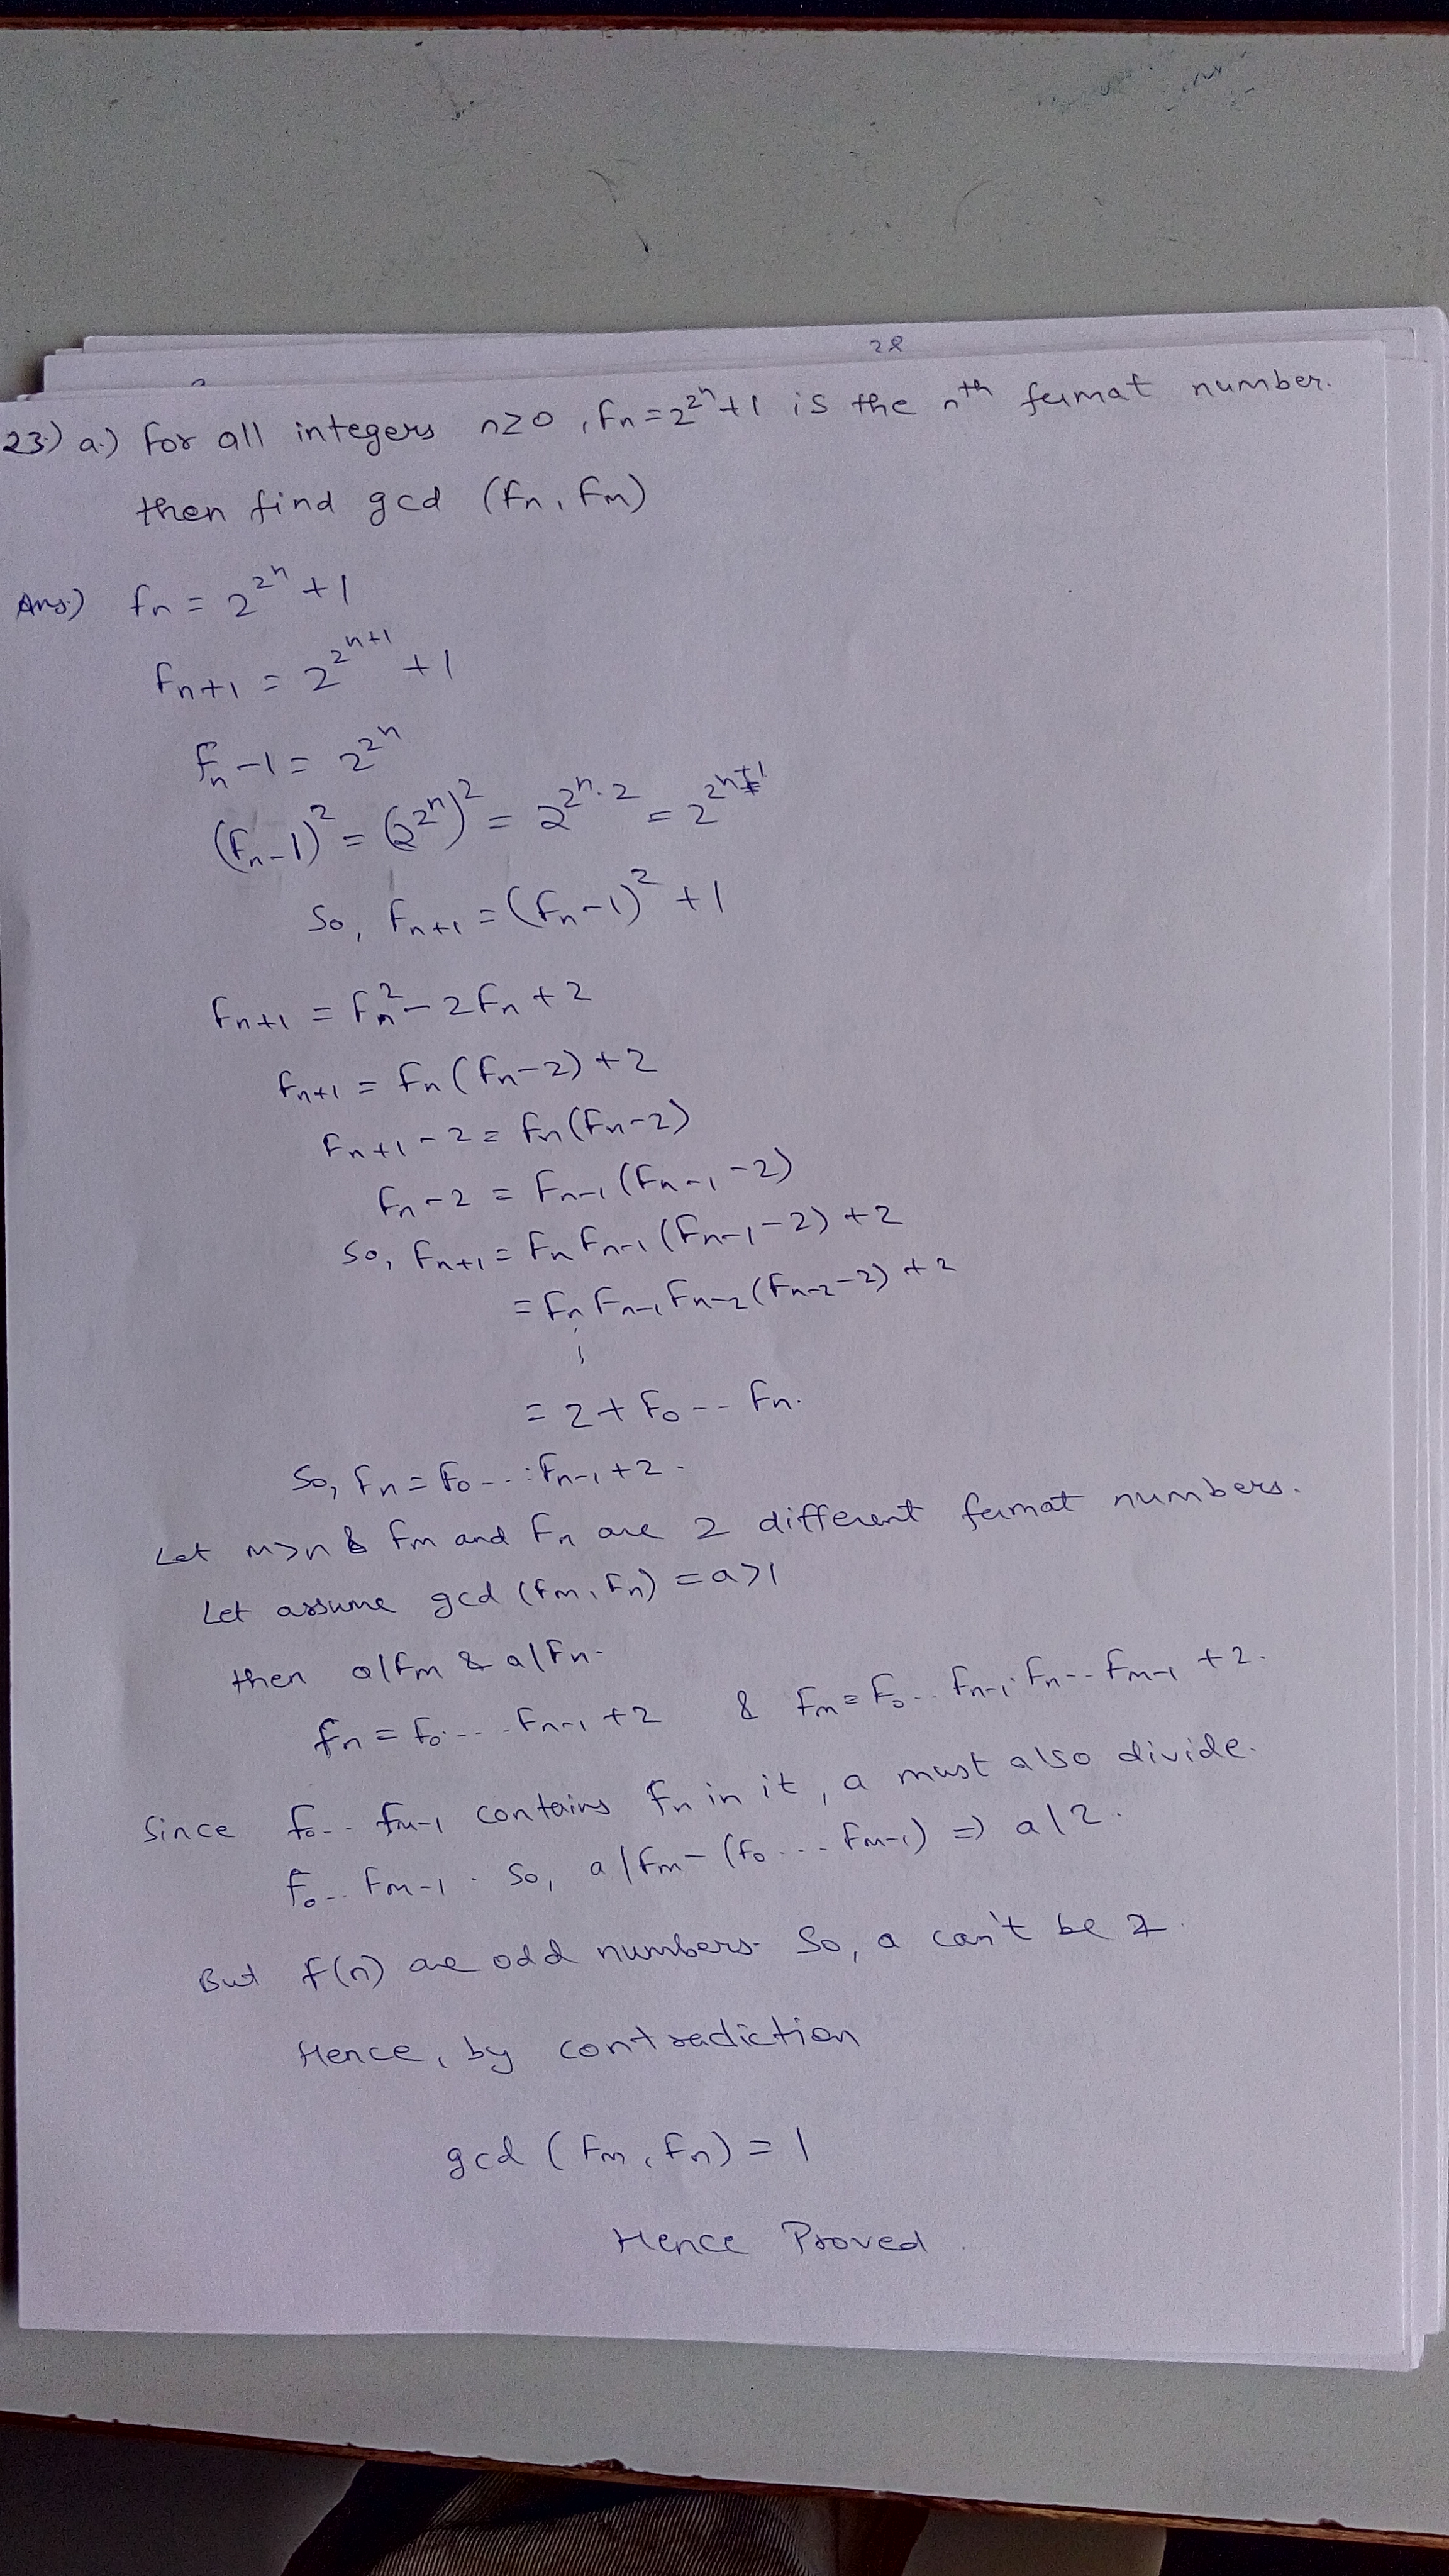 28
23.) a.) for all integers n≥0, Fn = 2^2^n + 1 is the nth fermat number.
then find gcd (Fn, Fm)
Ans.) Fn = 2^2^n + 1
Fn+1 = 2^2^n+1 + 1
Fn - 1 = 2^2^n
(Fn - 1)^2 = (2^2^n)^2 = 2^2^n·2 = 2^2^n+1
So, Fn+1 = (Fn - 1)^2 + 1
Fn+1 = Fn^2 - 2Fn + 2
Fn+1 = Fn (Fn - 2) + 2
Fn+1 - 2 = Fn (Fn - 2)
Fn - 2 = Fn-1 (Fn-1 - 2)
So, Fn+1 = Fn Fn-1 (Fn-1 - 2) + 2
= Fn Fn-1 Fn-2 (Fn-2 - 2) + 2
= 2 + F0 -- Fn.
So, Fn = F0 --- Fn-1 + 2.
Let m>n & Fm and Fn are 2 different fermat numbers.
Let assume gcd (Fm, Fn) = a>1
then a|Fm & a|Fn.
Fn = F0 ---- Fn-1 + 2 & Fm = F0 .. Fn-1 · Fn -- Fm-1 + 2.
Since F0 .. Fm-1 contains Fn in it, a must also divide.
F0 .. Fm-1 . So, a|Fm - (F0 ... Fm-1) ⇒ a|2.
But F(n) are odd numbers. So, a can't be 2.
Hence, by contradiction
gcd (Fm, Fn) = 1
Hence Proved.